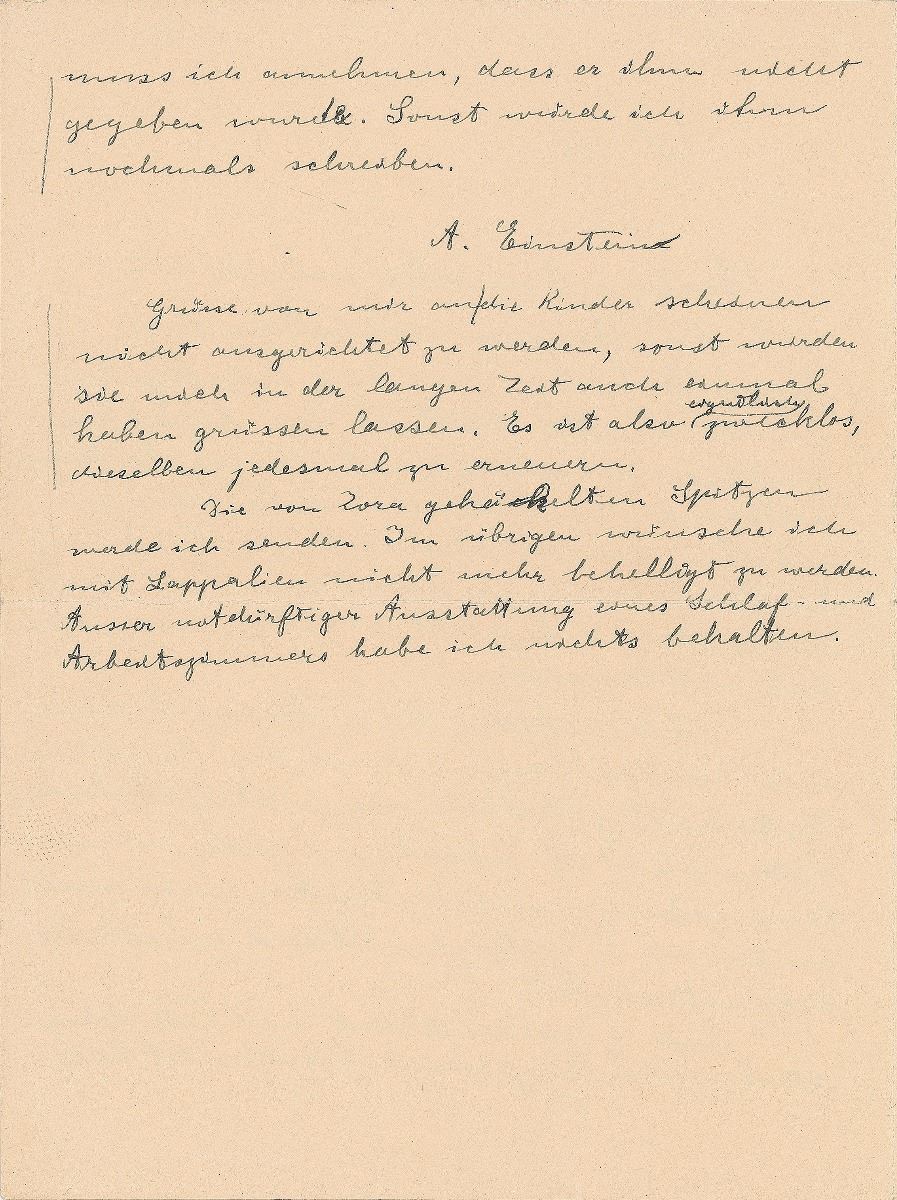 muss ich annehmen, dass er ihm nicht
gegeben wurde. Sonst würde ich ihm
nochmals schreiben.
A. Einstein
Grüsse von mir an die Kinder scheinen
nicht ausgerichtet zu werden, sonst würden
sie mich in der langen Zeit auch einmal
haben grüssen lassen. Es ist also zwecklos,
dieselben jedesmal zu erneuern.
Die von Zora gehäckelten Spitzen
werde ich senden. Im übrigen wünsche ich
mit Lappalien nicht mehr behelligt zu werden.
Ausser notdürftiger Ausstattung eines Schlaf- und
Arbeitszimmers habe ich nichts behalten.